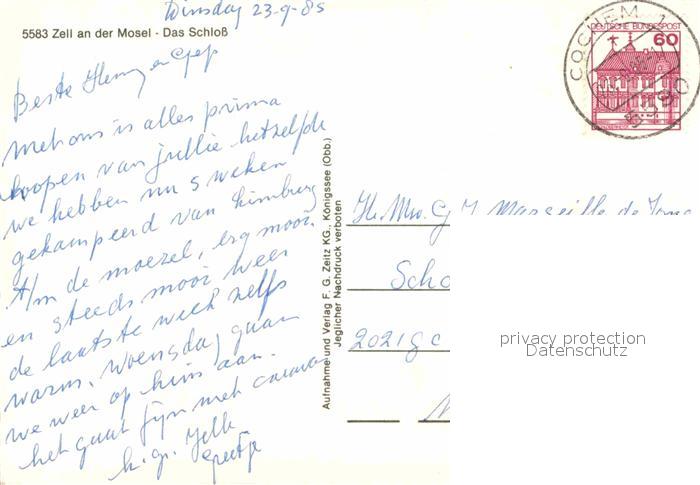 Dinsdag 23-9-85
5583 Zell an der Mosel - Das Schloß
Beste Henny en Gep
Met ons is alles prima
hoopen van jullie hetzelfde
we hebben nu 3 weken
gekampeerd van Limburg
t/m de moezel, erg mooi.
en steeds mooi weer
de laatste week zelfs
warm. Woensdag gaan
we weer op huis aan.
het gaat fijn met caravan
h. gr. Jelle
Greetje
Aufnahme und Verlag F. G. Zeitz KG., Königssee (Obb.)
Jeglicher Nachdruck verboten
DEUTSCHE BUNDESPOST
60
COCHEM 1
5590
Marseille de
Scho
2021 g c
privacy protection
Datenschutz